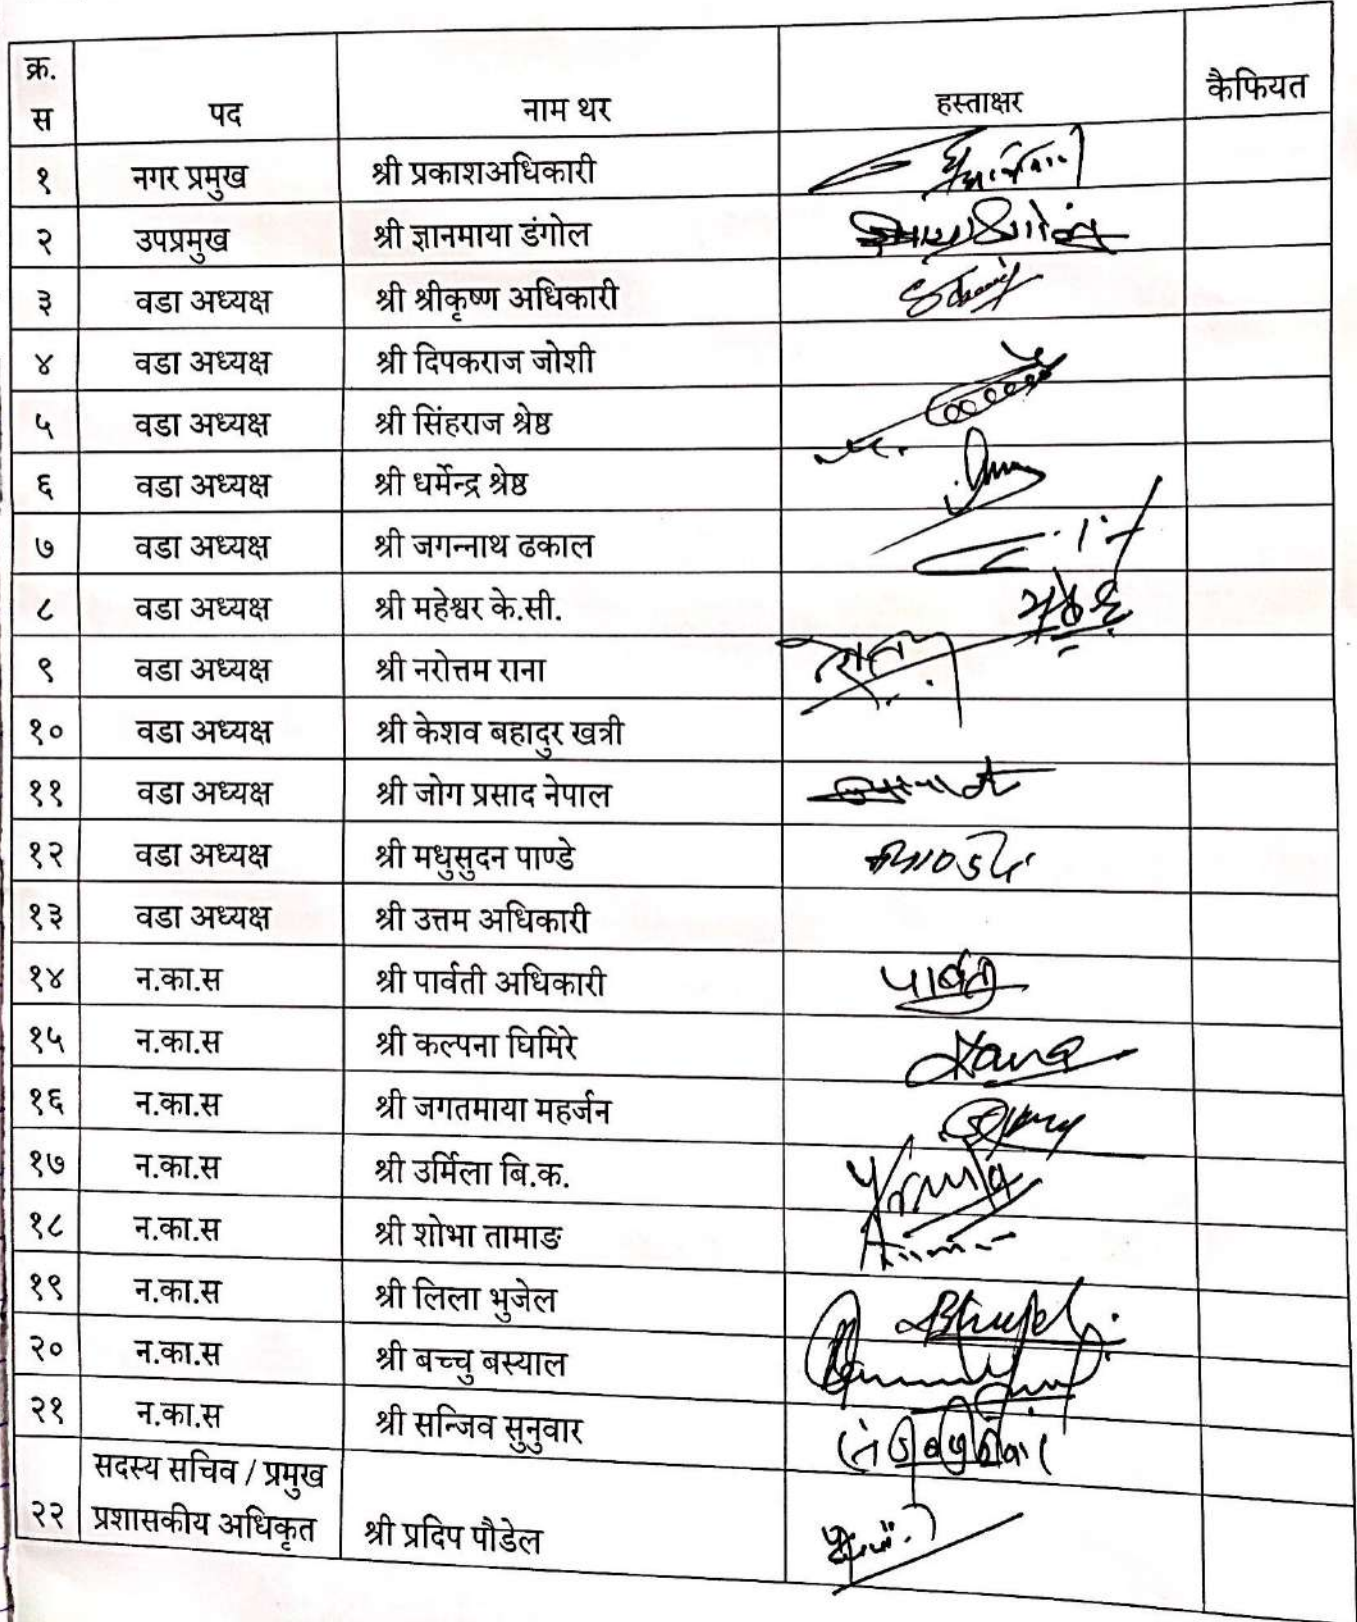 क्र.
स पद नाम थर हस्ताक्षर कैफियत
१ नगर प्रमुख श्री प्रकाशअधिकारी
२ उपप्रमुख श्री ज्ञानमाया डंगोल
३ वडा अध्यक्ष श्री श्रीकृष्ण अधिकारी
४ वडा अध्यक्ष श्री दिपकराज जोशी
५ वडा अध्यक्ष श्री सिंहराज श्रेष्ठ
६ वडा अध्यक्ष श्री धर्मेन्द्र श्रेष्ठ
७ वडा अध्यक्ष श्री जगन्नाथ ढकाल
८ वडा अध्यक्ष श्री महेश्वर के.सी.
९ वडा अध्यक्ष श्री नरोत्तम राना
१० वडा अध्यक्ष श्री केशव बहादुर खत्री
११ वडा अध्यक्ष श्री जोग प्रसाद नेपाल
१२ वडा अध्यक्ष श्री मधुसुदन पाण्डे
१३ वडा अध्यक्ष श्री उत्तम अधिकारी
१४ न.का.स श्री पार्वती अधिकारी पार्वती
१५ न.का.स श्री कल्पना घिमिरे
१६ न.का.स श्री जगतमाया महर्जन
१७ न.का.स श्री उर्मिला बि.क.
१८ न.का.स श्री शोभा तामाङ
१९ न.का.स श्री लिला भुजेल
२० न.का.स श्री बच्चु बस्याल
२१ न.का.स श्री सन्जिव सुनुवार
सदस्य सचिव / प्रमुख
२२ प्रशासकीय अधिकृत श्री प्रदिप पौडेल